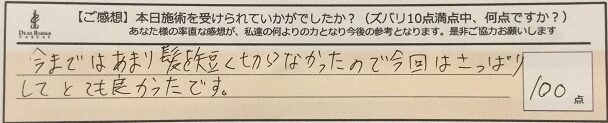 【ご感想】本日施術を受けられていかがでしたか？（ズバリ10点満点中、何点ですか？）
あなた様の率直な感想が、私達の何よりの力となり今後の参考となります。是非ご協力お願いします
DEAR BARBER
今まではあまり髪を短く切らなかったので今回はさっぱり
してとても良かったです。
100点